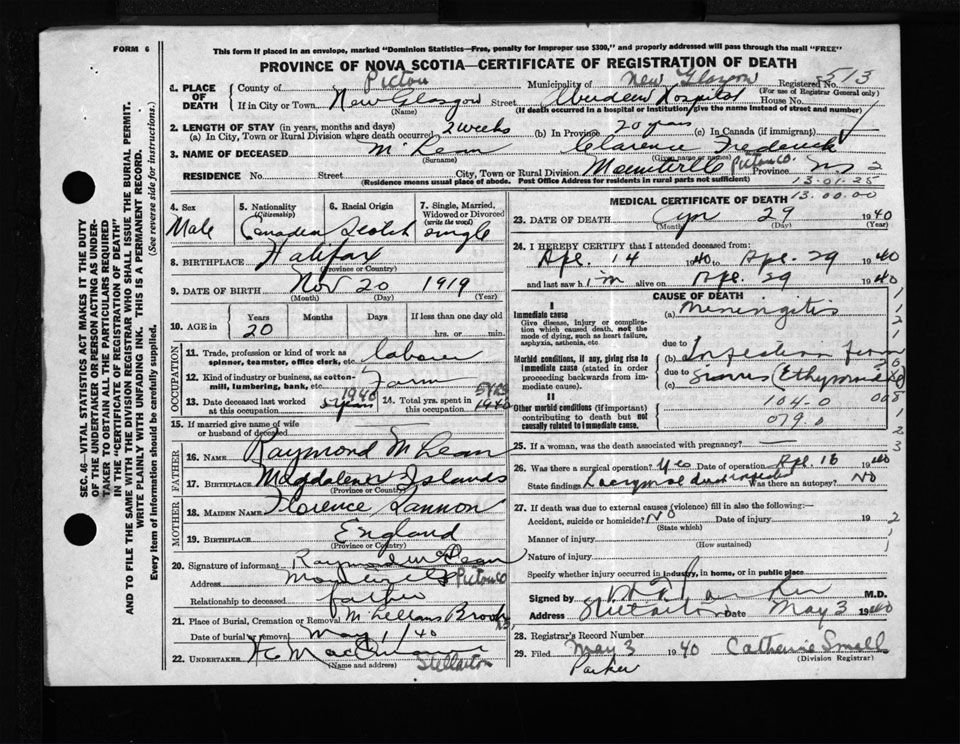 FORM 6
This form if placed in an envelope, marked "Dominion Statistics—Free, penalty for improper use $300," and properly addressed will pass through the mail "FREE"
PROVINCE OF NOVA SCOTIA—CERTIFICATE OF REGISTRATION OF DEATH
1. PLACE OF DEATH
County of Pictou Municipality of New Glasgow Registered No. 513
(For use of Registrar General only)
If in City or Town New Glasgow Street Aberdeen Hospital House No.
(Name) (If death occurred in a hospital or institution, give the name instead of street and number)
2. LENGTH OF STAY (in years, months and days)
(a) In City, Town or Rural Division where death occurred 2 weeks (b) In Province 20 years (c) In Canada (if immigrant)
3. NAME OF DECEASED McLean Clarence Frederick
(Surname) (Given name or names)
RESIDENCE No. Street City, Town or Rural Division Pictou Co. Province N.S. 2
(Residence means usual place of abode. Post Office Address for residents in rural parts not sufficient)
13-01-25
13.00.00
4. Sex Male
5. Nationality (Citizenship) Canadian
6. Racial Origin Scotch
7. Single, Married, Widowed or Divorced (write the word) single
8. BIRTHPLACE Halifax
(Province or Country)
9. DATE OF BIRTH Nov 20 1919
(Month) (Day) (Year)
10. AGE in Years 20 Months Days If less than one day old hrs. or min.
OCCUPATION
11. Trade, profession or kind of work as spinner, teamster, office clerk, etc. laborer
12. Kind of industry or business, as cotton-mill, lumbering, bank, etc. Farm
13. Date deceased last worked at this occupation 1940
14. Total yrs. spent in this occupation 5 yrs 1940
15. If married give name of wife or husband of deceased
FATHER
16. NAME Raymond McLean
17. BIRTHPLACE Magdalene Islands
(Province or Country)
MOTHER
18. MAIDEN NAME Florence Lannon
19. BIRTHPLACE England
(Province or Country)
20. Signature of informant Raymond McLean
Address Pictou Co
Relationship to deceased father
21. Place of Burial, Cremation or Removal McLellans Brook
Date of burial or removal May 1/40
22. UNDERTAKER
(Name and address) Stellarton
MEDICAL CERTIFICATE OF DEATH
23. DATE OF DEATH Apr 29 1940
(Month) (Day) (Year)
24. I HEREBY CERTIFY that I attended deceased from:
Apr. 14 1940 to Apr. 29 1940
and last saw him alive on Apr. 29 1940
CAUSE OF DEATH
I
Immediate cause
Give disease, injury or complication which caused death, not the mode of dying, such as heart failure, asphyxia, asthenia, etc.
(a) Meningitis
due to
Morbid conditions, if any, giving rise to immediate cause (stated in order proceeding backwards from immediate cause).
(b) Infection from
due to
(c) sinus
II
Other morbid conditions (if important) contributing to death but not causally related to immediate cause.
104-0
079.0
25. If a woman, was the death associated with pregnancy?
26. Was there a surgical operation? Yes Date of operation Apl. 18 1940
State findings Was there an autopsy? No
27. If death was due to external causes (violence) fill in also the following:—
Accident, suicide or homicide? No Date of injury 19
(State which)
Manner of injury
(How sustained)
Nature of injury
Specify whether injury occurred in industry, in home, or in public place
Signed by M.D.
Address Stellarton Date May 3 1940
28. Registrar's Record Number
29. Filed May 3 1940 Catherine Small
(Division Registrar)
Parker
SEC. 46—VITAL STATISTICS ACT MAKES IT THE DUTY OF THE UNDERTAKER OR PERSON ACTING AS UNDERTAKER TO OBTAIN ALL THE PARTICULARS REQUIRED IN THE "CERTIFICATE OF REGISTRATION OF DEATH" AND TO FILE THE SAME WITH THE DIVISION REGISTRAR WHO SHALL ISSUE THE BURIAL PERMIT.
WRITE PLAINLY WITH UNFADING INK. THIS IS A PERMANENT RECORD.
Every item of Information should be carefully supplied. (See reverse side for instructions.)